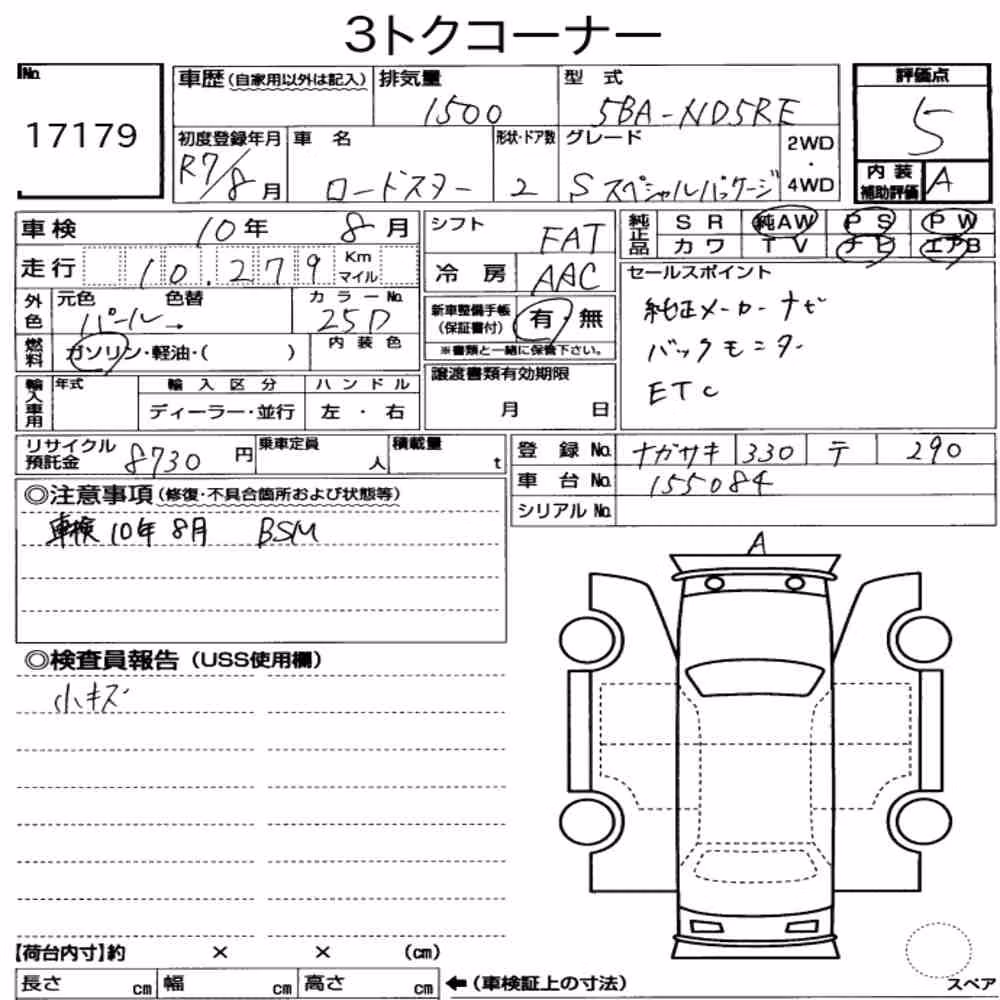 3トクコーナー
No. 17179
車歴(自家用以外は記入) 排気量 1500 型式 5BA-ND5RE
初度登録年月 R7/8月 車名 ロードスター 形状・ドア数 2 グレード Sスペシャルパッケージ 2WD・4WD
評価点 5
内装補助評価 A
車検 10年 8月
走行 10,279 Km マイル
外色 元色 色替 パール→ カラーNo. 25D
燃料 ガソリン・軽油・( ) 内装色
輸入車用 年式 輸入区分 ハンドル
ディーラー・並行 左・右
シフト FAT
冷房 AAC
新車整備手帳(保証書付) 有 無
※書類と一緒に保管下さい。
譲渡書類有効期限
月 日
純正品 SR 純AW PS PW
カワ TV ナビ エアB
セールスポイント
純正メーカーナビ
バックモニター
ETC
リサイクル預託金 8730円 乗車定員 人 積載量 t
登録No. ナガサキ 330 テ 290
車台No. 155084
シリアルNo.
◎注意事項(修復・不具合箇所および状態等)
車検10年8月 BSM
◎検査員報告(USS使用欄)
小キズ
A
【荷台内寸】約 × × (cm)
長さ cm 幅 cm 高さ cm ←(車検証上の寸法)
スペア